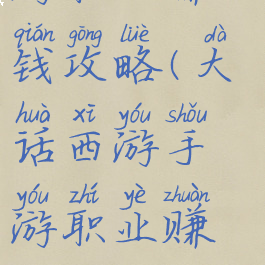 qián gōng lüè dà
钱攻略(大
huà xī yóu shǒu
话西游手
yóu zhí yè zhuàn
游职业赚